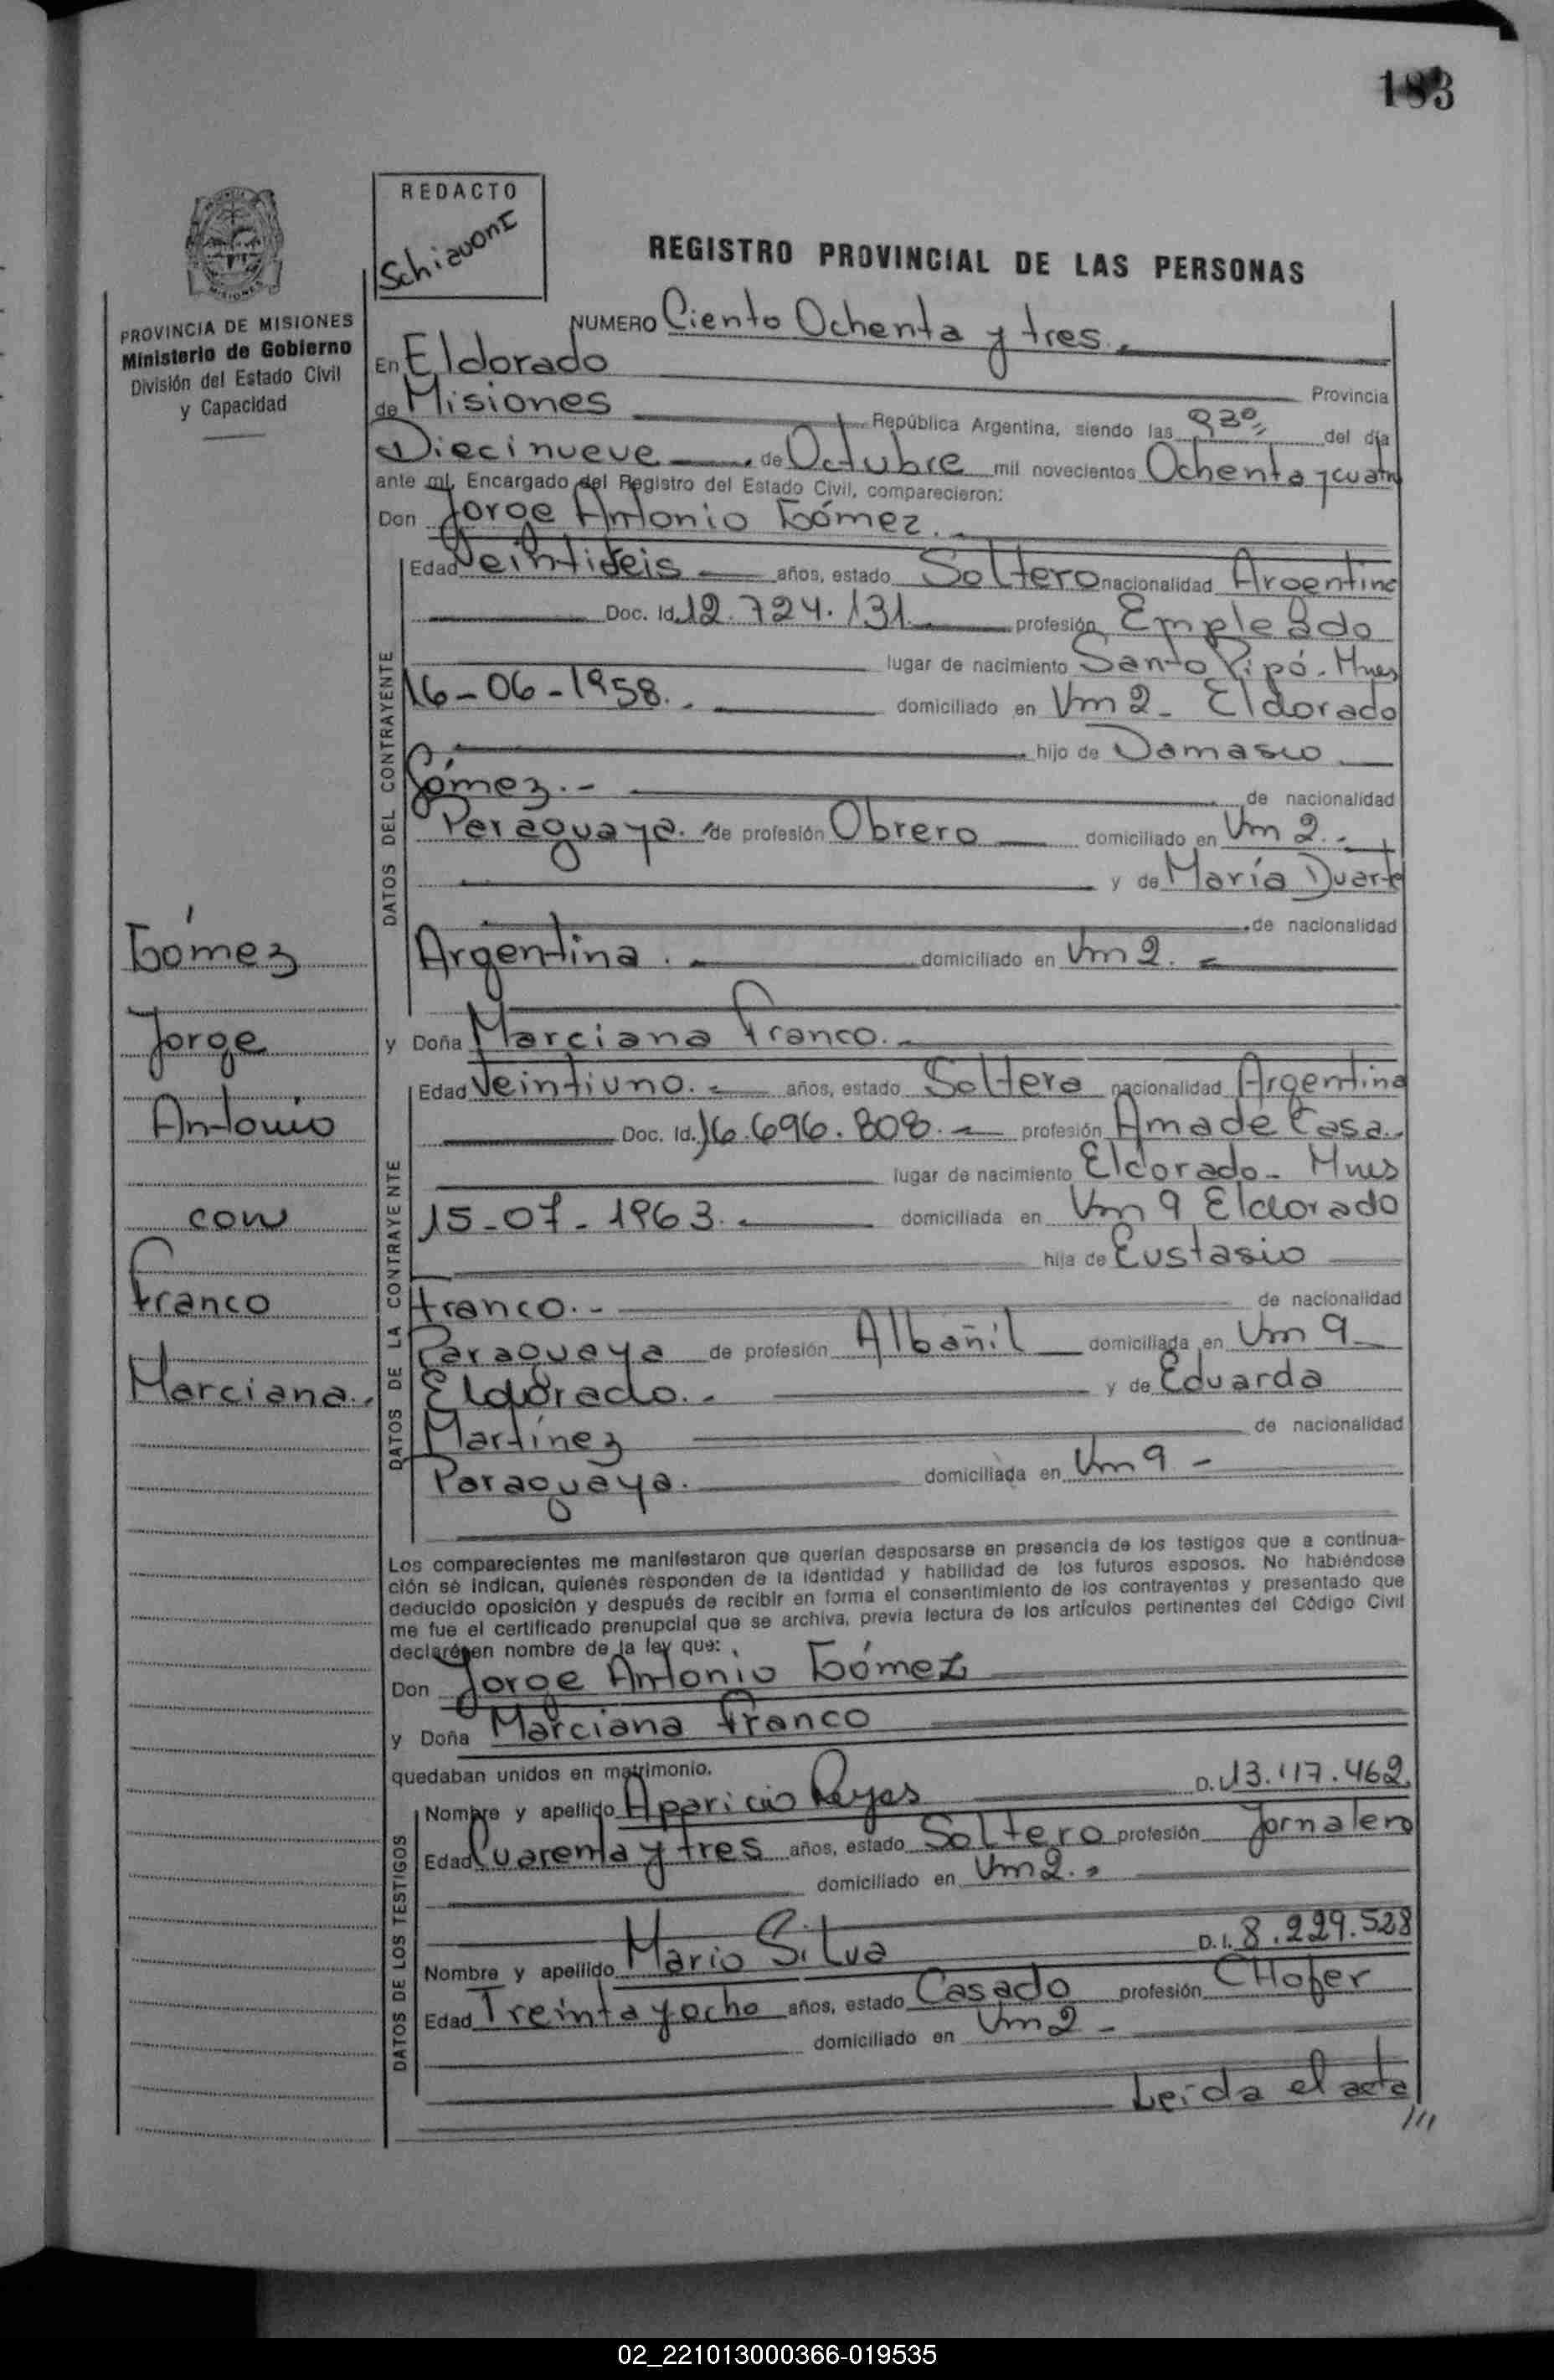 183
REDACTO
Schiavoni
REGISTRO PROVINCIAL DE LAS PERSONAS
PROVINCIA DE MISIONES
Ministerio de Gobierno
División del Estado Civil
y Capacidad
NUMERO Ciento Ochenta y tres.
En Eldorado Provincia
de Misiones República Argentina, siendo las del día
Diecinueve de Octubre mil novecientos Ochenta y cuatro
ante mí, Encargado del Registro del Estado Civil, comparecieron:
Don Jorge Antonio Gómez.
DATOS DEL CONTRAYENTE
Edad Veintiseis años, estado Soltero nacionalidad Argentina
Doc. Id. 12.724.131. profesión Empleado
lugar de nacimiento Santo Pipó. Mnes
16-06-1958. domiciliado en Vm 2- Eldorado
hijo de Damasio
Gómez.- de nacionalidad
Paraguaya. de profesión Obrero domiciliado en Vm 2.-
y de María Duarte
de nacionalidad
Argentina. domiciliado en Vm 2.
y Doña Marciana Franco.
DATOS DE LA CONTRAYENTE
Edad Veintiuno. años, estado Soltera nacionalidad Argentina
Doc. Id. 16.696.808. profesión Ama de Casa.
lugar de nacimiento Eldorado- Mnes
15-07-1963. domiciliada en Vm 9 Eldorado
hija de Eustasio
Franco.- de nacionalidad
Paraguaya de profesión Albañil domiciliada en Vm 9
Eldorado.- y de Eduarda
Martínez de nacionalidad
Paraguaya. domiciliada en Vm 9 -
Gómez
Jorge
Antonio
con
Franco
Marciana.
Los comparecientes me manifestaron que querían desposarse en presencia de los testigos que a continua-
ción se indican, quienes responden de la identidad y habilidad de los futuros esposos. No habiéndose
deducido oposición y después de recibir en forma el consentimiento de los contrayentes y presentado que
me fue el certificado prenupcial que se archiva, previa lectura de los artículos pertinentes del Código Civil
declaré en nombre de la ley que:
Don Jorge Antonio Gómez
y Doña Marciana Franco
quedaban unidos en matrimonio.
DATOS DE LOS TESTIGOS
Nombre y apellido Aparicio Reyes D.I. 13.117.462
Edad Cuarenta y tres años, estado Soltero profesión Jornalero
domiciliado en Vm 2.
Nombre y apellido Mario Silva D.I. 8.229.528
Edad Treinta y ocho años, estado Casado profesión CHofer
domiciliado en Vm 2 -
Leída el acta
///
02_221013000366-019535